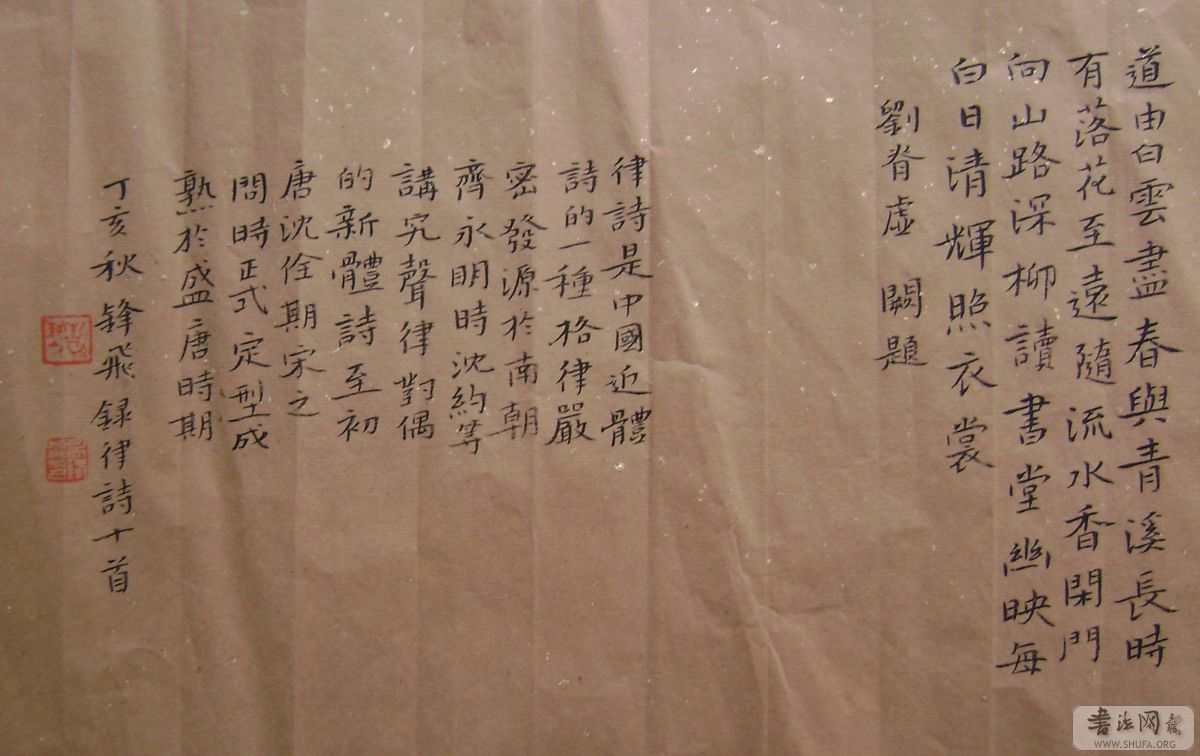 道由白雲盡春與青溪長時
有落花至遠隨流水香閑門
向山路深柳讀書堂幽映每
白日清輝照衣裳
劉脊虛 闕題
律詩是中國近體
詩的一種格律嚴
密發源於南朝
齊永明時沈約等
講究聲律對偶
的新體詩至初
唐沈佺期宋之
問時正式定型成
熟於盛唐時期
丁亥秋鋒飛録律詩十首
書法网
WWW.SHUFA.ORG